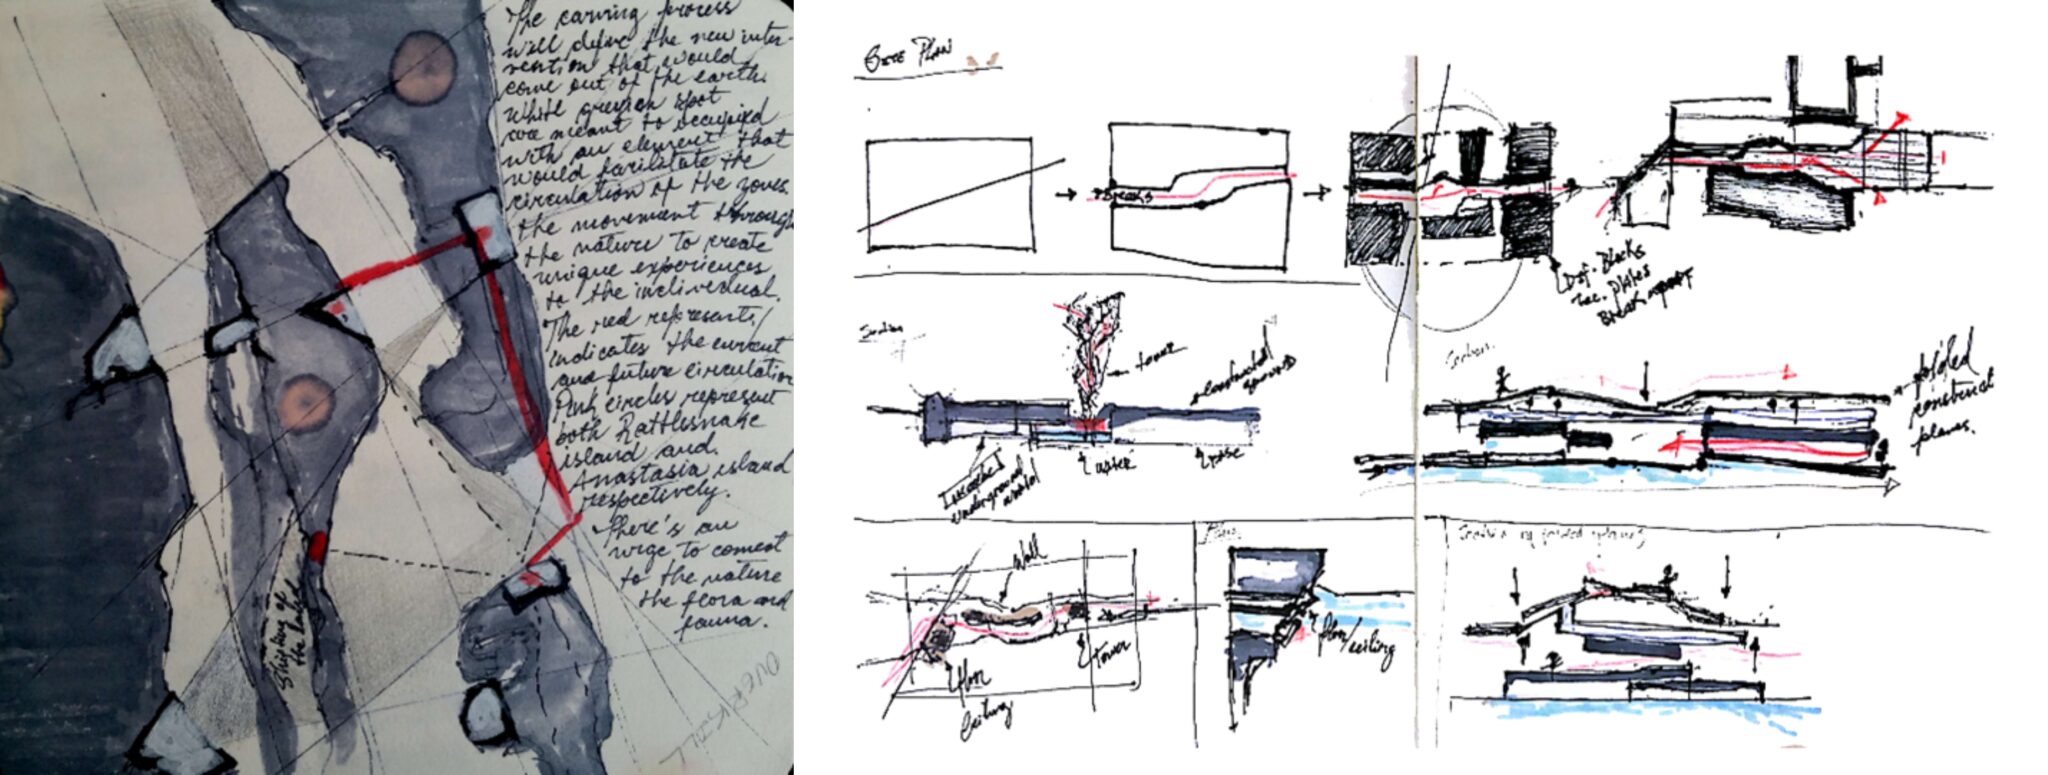 The carving process
will define the new inter-
vention that would
come out of the earth.
White greyish spot
are meant to occupied
with an element that
would facilitate the
circulation of the zones.
the movement through
the nature to create
unique experiences
to the individual.
The red represents/
indicates the current
and future circulation
Pink circles represent
both Rattlesnake
island and
Anastasia island
respectively.
There's an
urge to connect
to the nature
the flora and
fauna.
Shifting of
the land
OVERSKILL
Site Plan
Breaks
Def. Blocks
Tec. Plates
Break apart
Section
tower
constructed
ground
underground
world
water
base
Section
folded
construct
planes.
Wall
floor
ceiling
tower
Plan
floor/ceiling
Section of folded planes